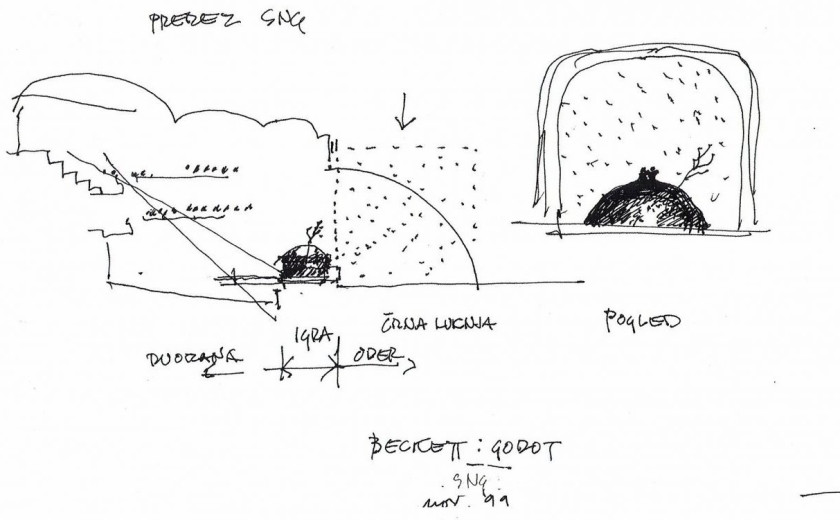 PREREZ SNG
IGRA
ČRNA LUKNJA
POGLED
DVORANA
ODER
BECKETT : GODOT
SNG
nov. 99